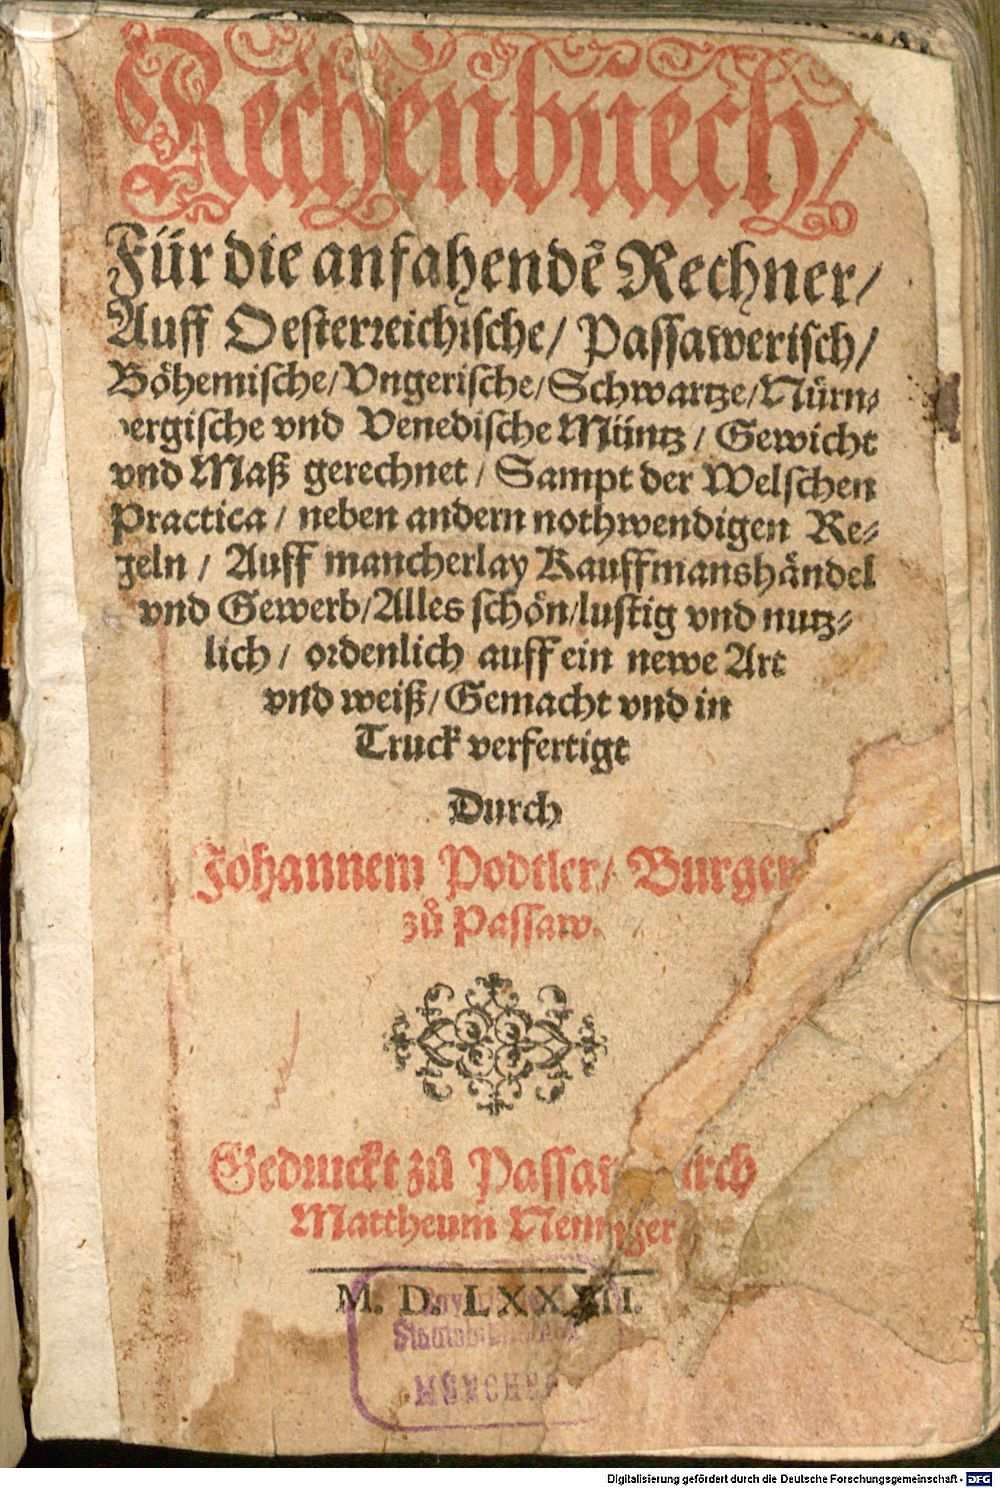 Rechenbuech/
Für die anfahendẽ Rechner/
Auff Oesterreichische/ Passawerisch/
Böhemische/Vngerische/Schwartze/Nürn⸗
bergische vnd Venedische Müntz/ Gewicht
vnd Maß gerechnet/ Sampt der Welschen
Practica/ neben andern nothwendigen Re⸗
geln/ Auff mancherlay Kauffmanshändel
vnd Gewerb/Alles schön/lustig vnd nutz⸗
lich/ ordenlich auff ein newe Art
vnd weiß/Gemacht vnd in
Truck verfertigt
Durch
Johannem Podtler/ Burger
zů Passaw.
Gedruckt zů Passaw durch
Mattheum Nenninger
M. D. LXXXIII.
Bayerische
Staatsbibliothek
MÜNCHEN
Digitalisierung gefördert durch die Deutsche Forschungsgemeinschaft - DFG